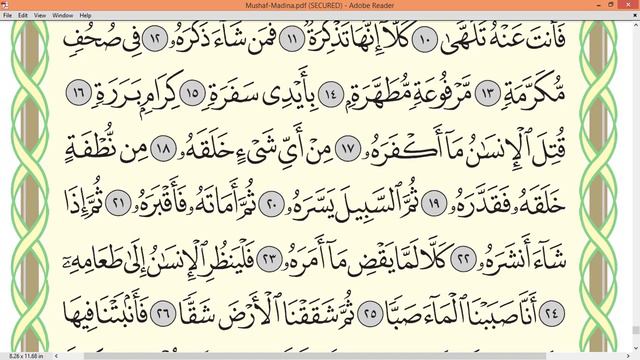 Mushaf-Madina.pdf (SECURED) - Adobe Reader
File Edit View Window Help
فَأَنتَ عَنْهُ تَلَهَّىٰ ١٠ كَلَّآ إِنَّهَا تَذْكِرَةٌ ١١ فَمَن شَآءَ ذَكَرَهُۥ ١٢ فِى صُحُفٍ
مُّكَرَّمَةٍ ١٣ مَّرْفُوعَةٍ مُّطَهَّرَةٍۭ ١٤ بِأَيْدِى سَفَرَةٍ ١٥ كِرَامٍۭ بَرَرَةٍ ١٦
قُتِلَ ٱلْإِنسَٰنُ مَآ أَكْفَرَهُۥ ١٧ مِنْ أَىِّ شَىْءٍ خَلَقَهُۥ ١٨ مِن نُّطْفَةٍ
خَلَقَهُۥ فَقَدَّرَهُۥ ١٩ ثُمَّ ٱلسَّبِيلَ يَسَّرَهُۥ ٢٠ ثُمَّ أَمَاتَهُۥ فَأَقْبَرَهُۥ ٢١ ثُمَّ إِذَا
شَآءَ أَنشَرَهُۥ ٢٢ كَلَّا لَمَّا يَقْضِ مَآ أَمَرَهُۥ ٢٣ فَلْيَنظُرِ ٱلْإِنسَٰنُ إِلَىٰ طَعَامِهِۦٓ
٢٤ أَنَّا صَبَبْنَا ٱلْمَآءَ صَبًّا ٢٥ ثُمَّ شَقَقْنَا ٱلْأَرْضَ شَقًّا ٢٦ فَأَنۢبَتْنَا فِيهَا
8.26 x 11.68 in